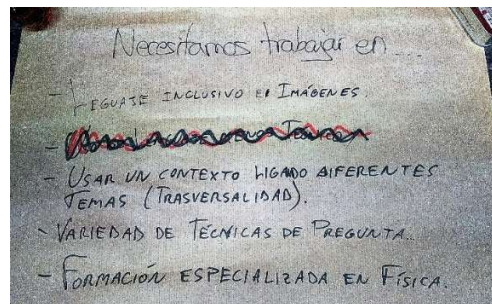 Necesitamos trabajar en...
- LEGUAJE INCLUSIVO EN IMÁGENES.
-
- USAR UN CONTEXTO LIGADO DIFERENTES
TEMAS (TRASVERSALIDAD).
- VARIEDAD DE TÉCNICAS DE PREGUNTA.
- FORMACIÓN ESPECIALIZADA EN FÍSICA.